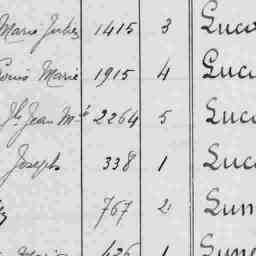 Marie Julie 1415 3 Luco
Louis Marie 1915 4 Luc
Jh Jean Mie 2264 5 Luc
Joseph 338 1 Luc
767 2 Lun
1